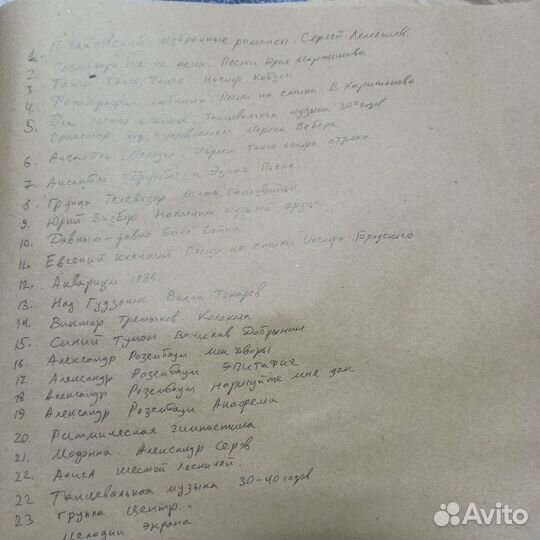 1. П. Чайковский. Избранные романсы. Сергей Лемешев.
2. Посмотри на меня. Песни Юрия Мартынова
3. Танго, Танго, Танго. Иосиф Кобзон
4. Фотографии любимых. Песни на стихи В. Харитонова
5. Для танцевальная музыка 30х годов
Оркестр под управлением Марека Вебера
6. Ансамбль Мелодия. Играет танго Оскара Строка
7. Ансамбль "Дружба" и Эдита Пьеха
8. Группа Телевизор. Шита Самоубийцы
9. Юрий Визбор Наполним музыкой сердца
10. Давным-давно была война
11. Евгений Клячкин Песни на стихи Иосифа Бродского
12. Аквариум 1986.
13. Над Гудзоном Вилли Токарев
14. Виктор Третьяков. Колокола
15. Синий туман Вячислав Добрынин
16. Александр Розенбаум мои дворы
17 Александр Розенбаум ЭПИТАФИЯ
18 Александр Розенбаум нарисуйте мне дом
19 Александр Розенбаум Анафема
20. Ритмическая гимнастика.
21. Мадонна. Александр Серов
22. Алиса Шестой лесничей.
22 Танцевальная музыка 30-40 годов
23 Группа Центр.
Мелодии экрана
Avito